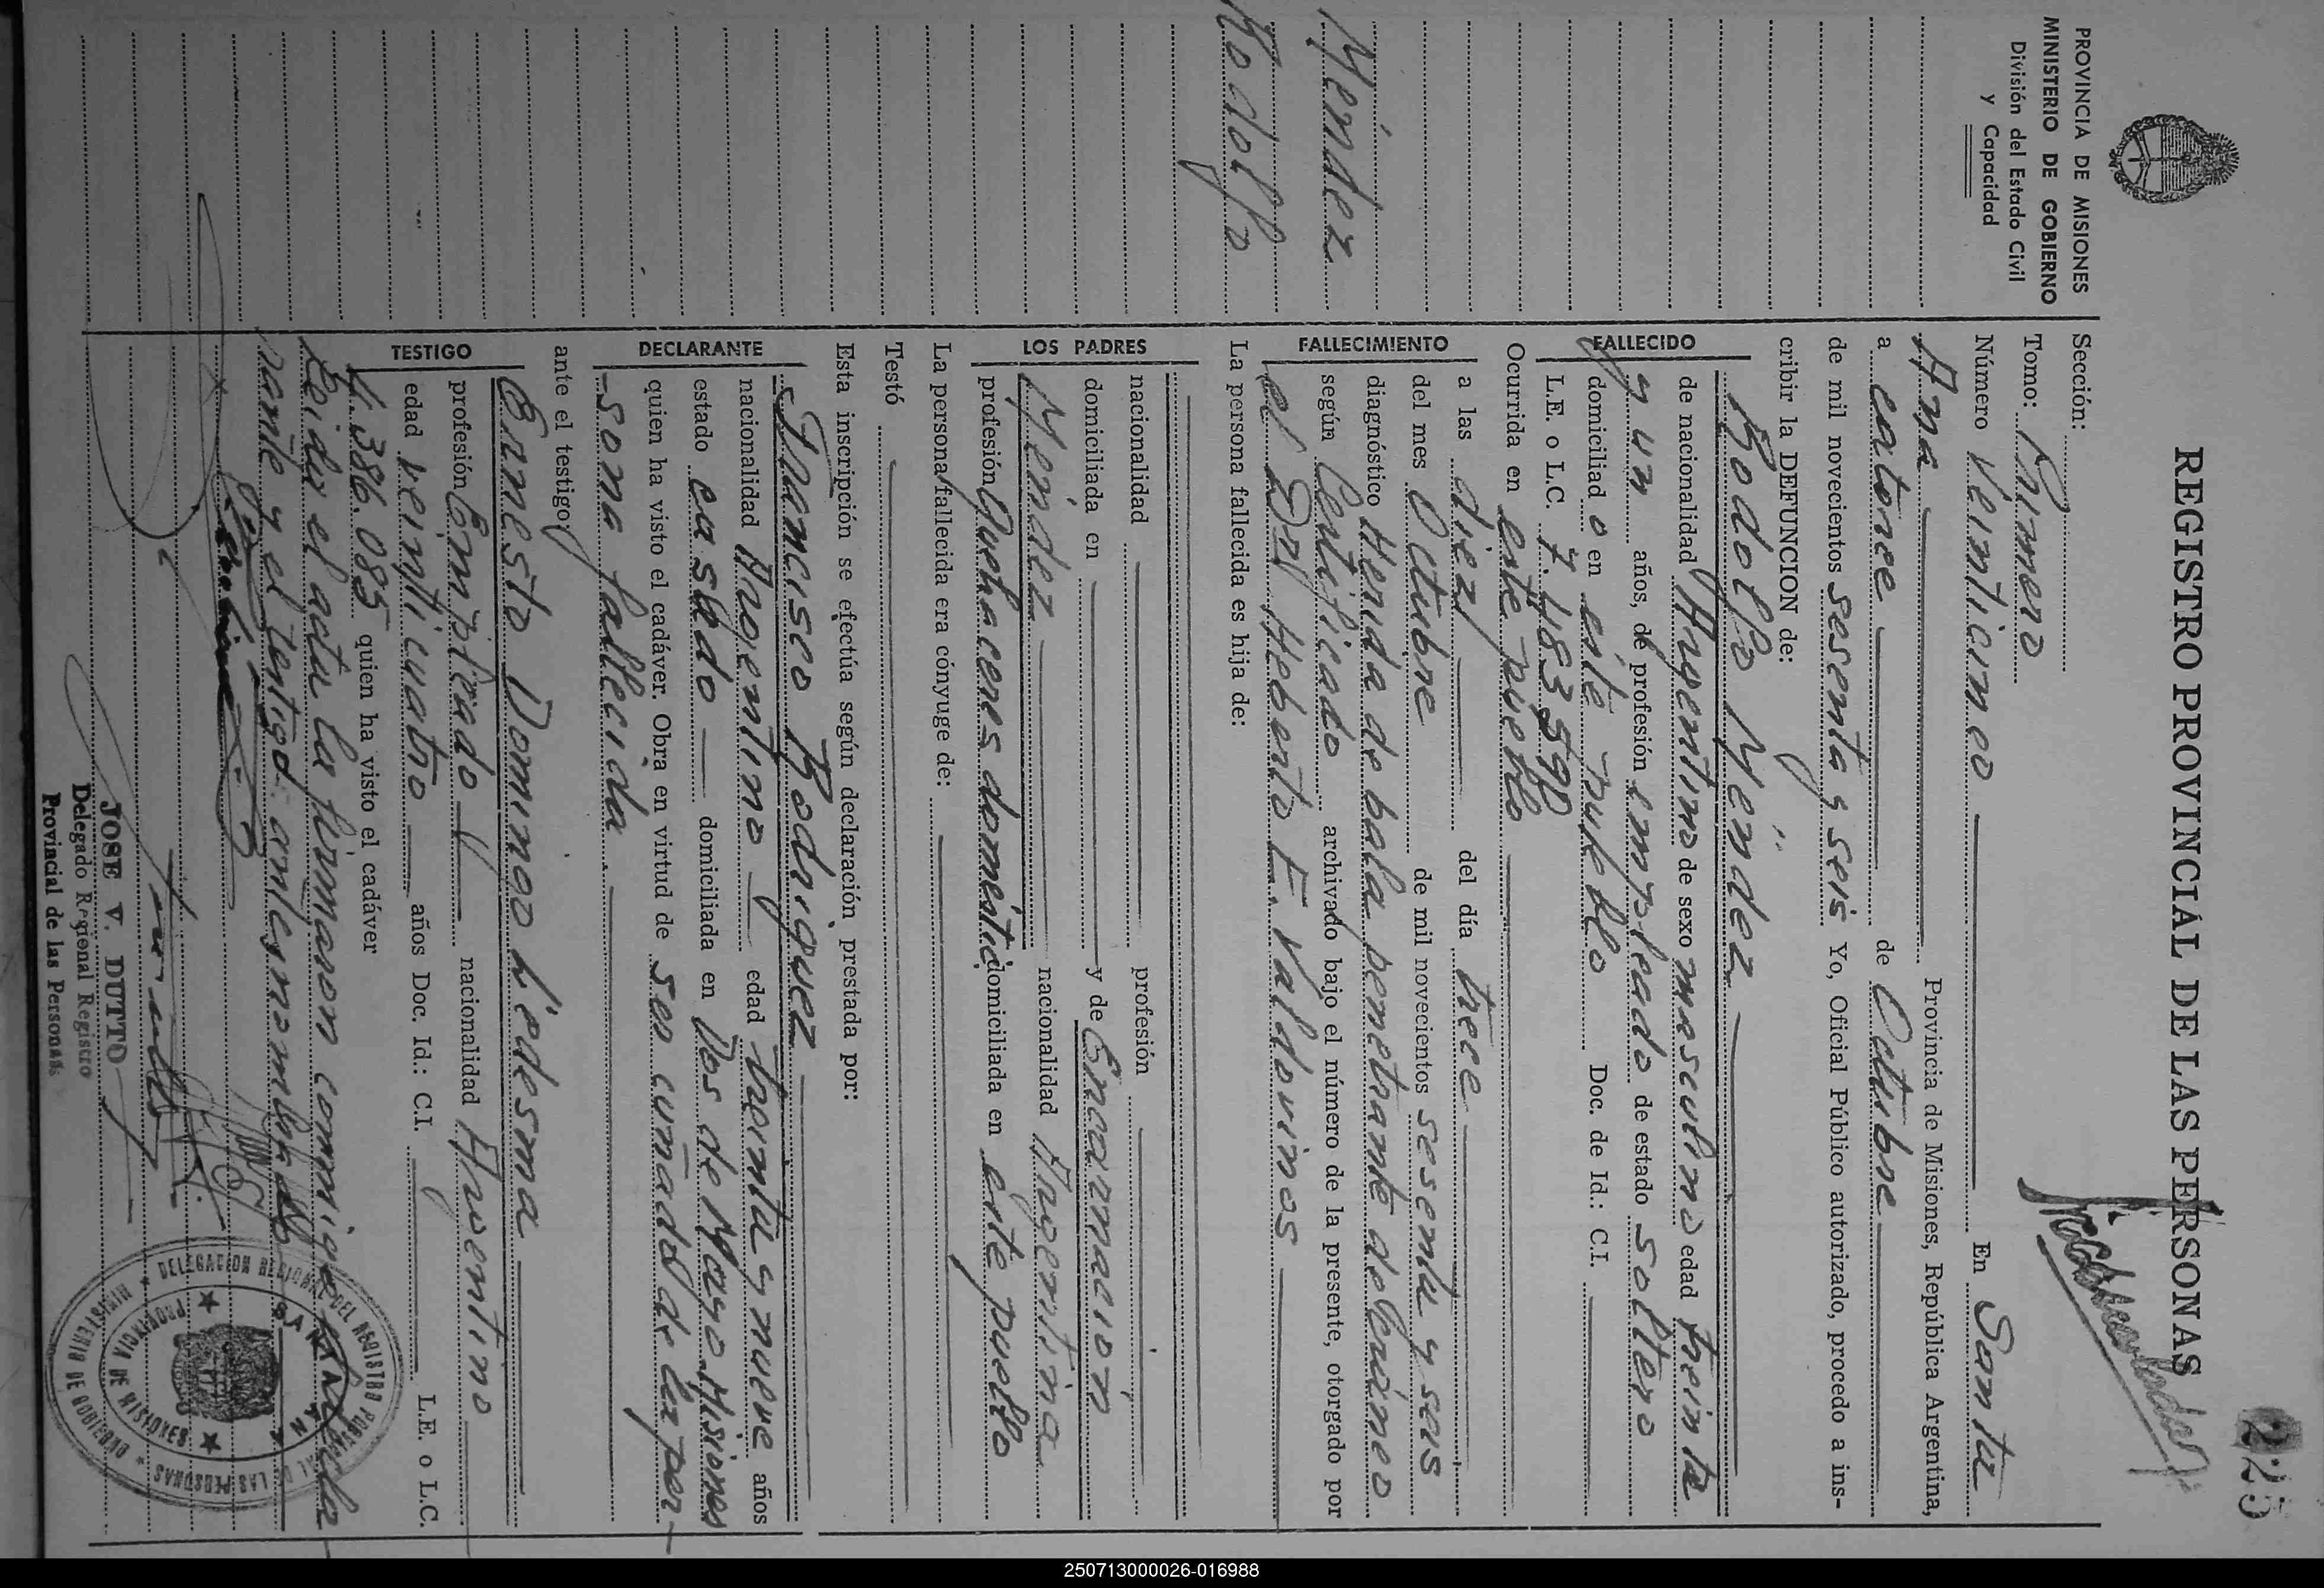 225
REGISTRO PROVINCIAL DE LAS PERSONAS
PROVINCIA DE MISIONES
MINISTERIO DE GOBIERNO
División del Estado Civil
y Capacidad
Méndez
Rodolfo
Sección:
Tomo: Primero
Número Veinticinco En Santa
Ana Provincia de Misiones, República Argentina,
a catorce de Octubre
de mil novecientos sesenta y seis Yo, Oficial Público autorizado, procedo a ins-
cribir la DEFUNCION de:
FALLECIDO
Rodolfo Méndez
de nacionalidad Argentino de sexo masculino edad treinta
y un años, de profesión empleado de estado soltero
domiciliado en este pueblo Doc. de Id.: C.I.
L.E. o L.C. 7.483.590
Ocurrida en este pueblo
FALLECIMIENTO
a las diez del día trece
del mes Octubre de mil novecientos sesenta y seis
diagnóstico Herida de bala penetrante de cráneo
según Certificado archivado bajo el número de la presente, otorgado por
el Dr. Heberto E. Valdovinos
La persona fallecida es hija de:
LOS PADRES
nacionalidad profesión
domiciliada en y de Encarnación
Méndez nacionalidad Argentina
profesión Quehaceres doméstic. domiciliada en este pueblo
La persona fallecida era cónyuge de:
Testó
Esta inscripción se efectúa según declaración prestada por:
DECLARANTE
Francisco Rodriguez
nacionalidad Argentino edad treinta y nueve años
estado casado domiciliada en Dos de Mayo Misiones
quien ha visto el cadáver. Obra en virtud de ser cuñado de la per-
-sona fallecida.
ante el testigo:
TESTIGO
Ernesto Domingo Ledesma
profesión Empleado nacionalidad Argentino
edad veinticuatro años Doc. Id.: C.I. L.E. o L.C.
4.386.085 quien ha visto el cadáver
Leida el acta la firmaron conmigo
rante y el testigo antesnombrado
JOSE V. DUTTO
Delegado Regional Registro
Provincial de las Personas
DELEGACION REGIONAL DEL REGISTRO PROVINCIAL DE LAS PERSONAS
MINISTERIO DE GOBIERNO
PROVINCIA DE MISIONES
SANTA ANA
250713000026-016988